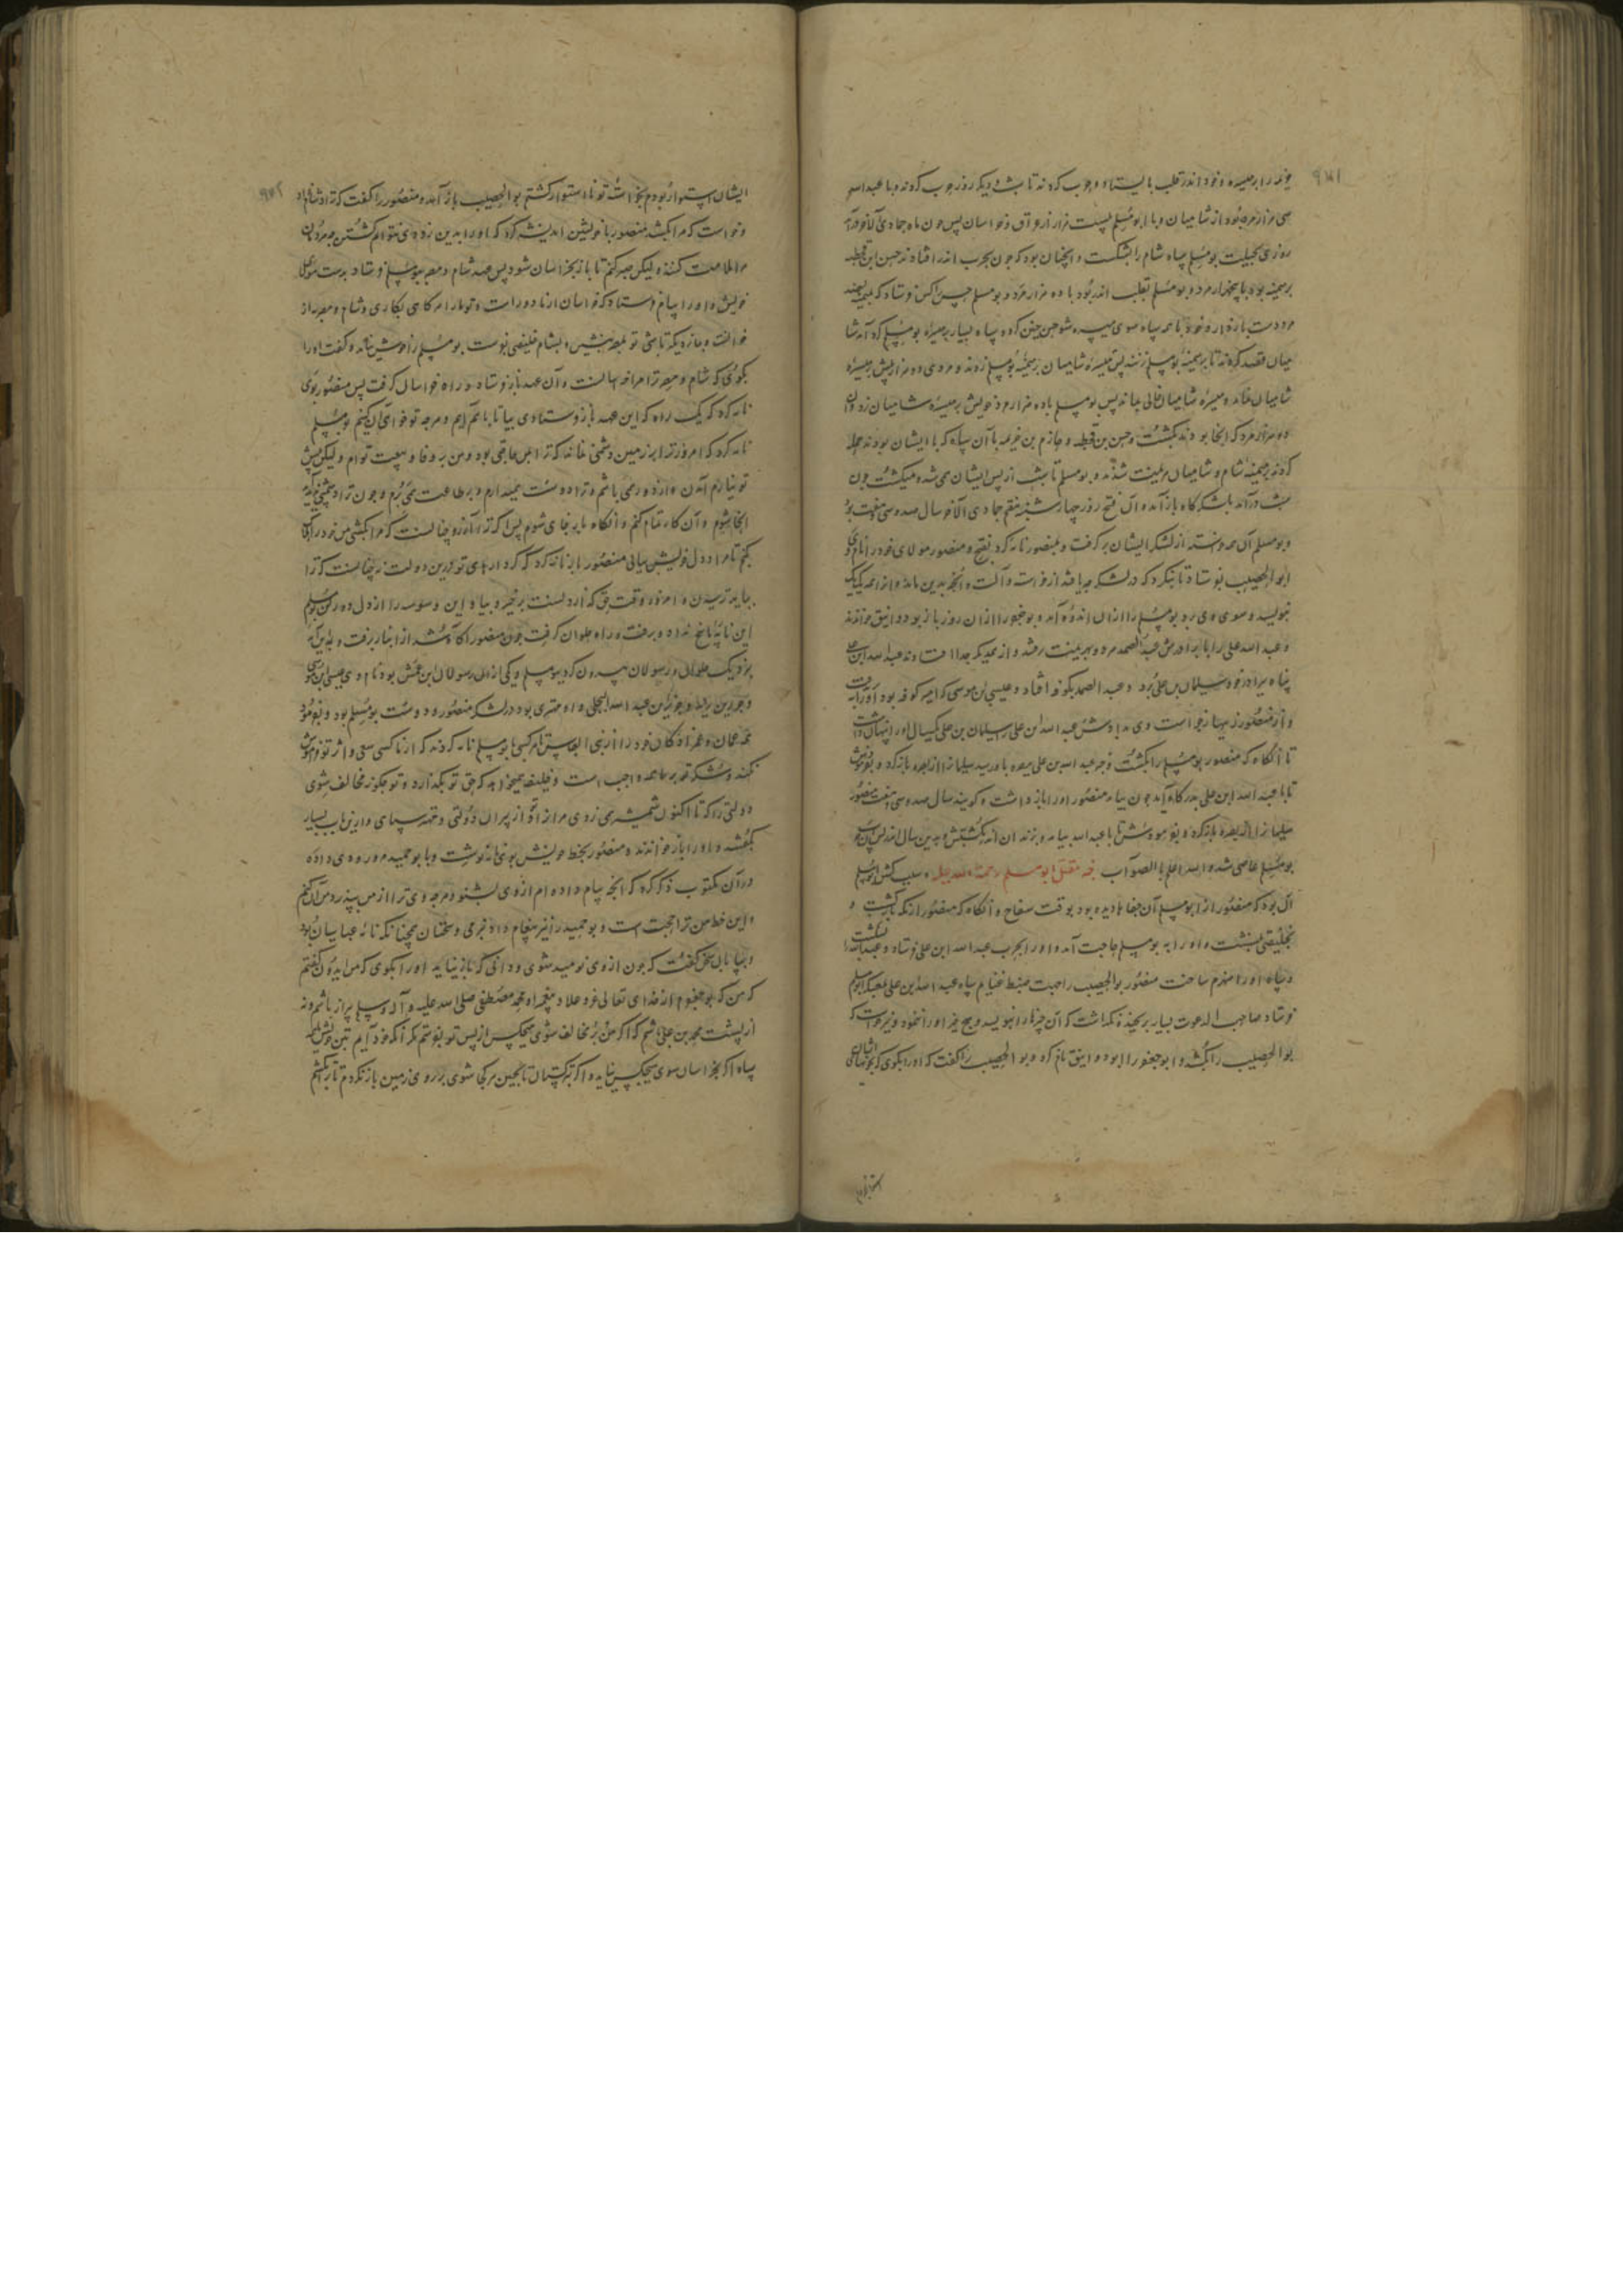 خزیمه را بر میسره و خود اندر قلب بایستاد و حرب کردند تا شب و دیگر روز حرب کردند و با عبدالله
سی هزار مرد بود از شامیان و با ابومسلم بیست هزار از عراق و خراسان پس چون ماه جمادی الآخر درآمد
روزی بحیلت بومسلم سپاه شام را بشکست و آنچنان بود که چون بحرب اندر افتادند حسن ابن قحطبه
بر میمنه بود با پنجهزار مرد و بومسلم بقلب اندر بود با ده هزار مرد و بومسلم کس فرستاد که
دست بازدار و خود با همه سپاه سوی میسره شو حسن چنین کرد و سپاه بسیار بر میسره بومسلم گرد آمد
میان قصد کردند تا بر میمنه بومسلم زنند پس میسره شامیان بر میمنه بومسلم زدند و مردی دو هزار پیش بر میسره
شامیان نماند و میسره شامیان خالی ماند پس بومسلم با ده هزار مرد خویش بر میسره شامیان زد و آن
ده هزار مرد که آنجا بودند بکشت و حسن بن قحطبه و خازم بن خزیمه با آن سپاه که با ایشان بودند حمله
کردند بر میمنه شام و شامیان بهزیمت شدند و بومسلم تا شب از پس ایشان همی شد و میکشت چون
شب درآمد بلشکرگاه باز آمد و آن فتح روز چهارشنبه هفتم جمادی الآخر سال صد و سی و هفت بود
و بومسلم آن همه خواسته از لشکر ایشان برگرفت و بمنصور نامه کرد بفتح و منصور مولای خود را نام وی
ابو الخصیب بفرستاد تا بنگرد که در لشکر چه یافتند از خواسته و آلت و آنچه بدین ماند و آن همه یک یک
بنویسد و سوی وی برد بومسلم را از آن اندوه آمد و بوجعفر را از آن روز باز بو دوانیق خواندند
و عبد الله علی را با برادرش عبد الصمد هر دو بهزیمت رفتند و از همدیگر جدا افتادند عبد الله ابن علی
پناه برادر خود سلیمان بن علی برد و عبد الصمد بکوفه افتاد و عیسی بن موسی که امیر کوفه بود او را
و از منصور زینهار خواست وی بدادش عبد الله ابن علی سلیمان بن علی یکسال او را پنهان داشت
تا آنگاه که منصور بومسلم را بکشت و خبر عبد الله بن علی ببصره باو رسید سلیمانرا از بصره باز کرد و بفرمودش
تا با عبد الله ابن علی بدرگاه آید چون بیامد منصور او را باز داشت و گویند سال صد و سی و هفت منصور
سلیمانرا از بصره باز کرد و بفرمودش تا با عبد الله بیامد و بزندان اندر بکشتش و بدین سال اندر
بومسلم عاصی شد و الله اعلم بالصواب خبر مقتل ابو مسلم رحمة الله علیه و سبب کشتن بومسلم
آن بود که منصور از ابومسلم آن جفاها دیده بود بوقت سفاح و آنگاه که منصور از مکه بازگشت و
بخلیفتی بنشست و او را به بومسلم حاجت آمد و او را بحرب عبد الله ابن علی فرستاد و عبدالله را بشکست
و سپاه او را منهزم ساخت منصور بوالخصیب را جهت ضبط غنایم سپاه عبد الله بن علی بلشکر ابومسلم
فرستاد صاحب الدعوت بسیار برنجید و نگذاشت که آن چیزها را بنویسد و هیچ چیز او را ننمود و نیز خواست که
بو الخصیب را بکشد و ابو جعفر را ابو دوانیق نام کرد و بو الخصیب را گفت که او را بگوی که بخونهای ایشان
ایشان استوار بودم بخواسته تو نا استوار گشتم بو الخصیب باز آمد و منصور را گفت که ترا دشنام داد
و خواست که مرا بکشد منصور با خویشتن اندیشه کرد که او را بدین زودی نتوانم کشتن چه مردمان
مرا ملامت کنند و لیکن صبر کنم تا باز بخراسان شود پس عهد شام و مصر ببومسلم فرستاد بدست
خویش و او را پیام فرستاد که خراسان از ما دور است و تو ما را هر گاهی بکاری و شام و مصر از
خراسانت و بما نزدیکتر باشی تو بمصر بنشین و بشام خلیفتی فرست بومسلم را خوش نیامد و گفت او را
بگوی که شام و مصر ترا مرا خراسانست و آن عهد باز فرستاد و راه خراسان گرفت پس منصور بوی
نامه کرد که یک راه که این عهد باز فرستادی بیا تا با هم آییم و هر چه تو خواهی آن کنیم بومسلم
نامه کرد که امروز ترا بر زمین دشمنی نماند که ترا با من حاجتی بود و من بر وفا و بیعت توام و لیکن پیش
تو نیارم آمدن و از دور همی باشم و ترا دوست میدارم و بر طاعت همی روم و چون ترا دشمنی پدید آید
آنجا شوم و آن کار تمام کنم و آنگاه باز بجای شوم پس اگر ترا آرزو چنانست که مرا بکشی من خود را نگاه
کنم تا مراد دل خویش نیابی منصور باز نامه کرد که کردارهای تو درین دولت نه چنانست که ترا
بباید ترسیدن و امروز وقت حق گذاردنست برخیز و بیا و این وسوسه را از دل دور کن بومسلم
این نامه پاسخ نداد و برفت و راه حلوان گرفت چون منصور آگاه شد از انبار برفت و بمداین آمد
بنزدیک حلوان و رسولان بیرون کرد ببومسلم و یکی از آن رسولان ابن عمش بود نام وی عیسی ابن موسی
و جریر بن یزید بن جریر بن عبد الله البجلی و او مهتری بود در لشکر منصور و دوست بومسلم بود و بفرمود
عمان و عمزادگان خود را از بنی العباس تا هر کسی ببومسلم نامه کردند که از ما کسی سعی و اثر تو فراموش
نکند و شکر تو بر ما همه واجب است و خلیفه میخواهد که حق تو بگذارد و تو چگونه مخالف شوی
دولتی را که تا اکنون شمشیر همی زدی مر آن را تو از پیران دولتی و مهتر سپاهی و ازین باب بسیار
بگفتند و او را باز خواندند و منصور بخط خویش بوی نامه نوشت و با بو حمید مرورودی داد
در آن مکتوب ذکر کرد که آنچه پیام داده ام از وی بشنو و هر چه وی ترا از من بپذیرد من آن کنم
و این خط من ترا حجت است و بو حمید را نیز پیغام داد نرمی و سخنان همچنانکه نامه عباسیان بود
و بپایان سخن گفت که چون از وی نومید شوی و دانی که باز نیاید او را بگوی که من ایدون گفتم
که من که بوجعفرم از خدای تعالی عز و علا و پیغمبر او محمد مصطفی صلی الله علیه و آله وسلم بیزار باشم و نه
از پشت محمد بن علی باشم که اگر من بر مخالف شوی هیچکس از پس تو نفرستم مگر آنکه خود آیم بتن خویش با همه
سپاه اگر بخراسان سوی هیچکس نیاید و اگر بترکستان تا بچین هر کجا شوی بر روی زمین باز نگردم تا ترا بکشم